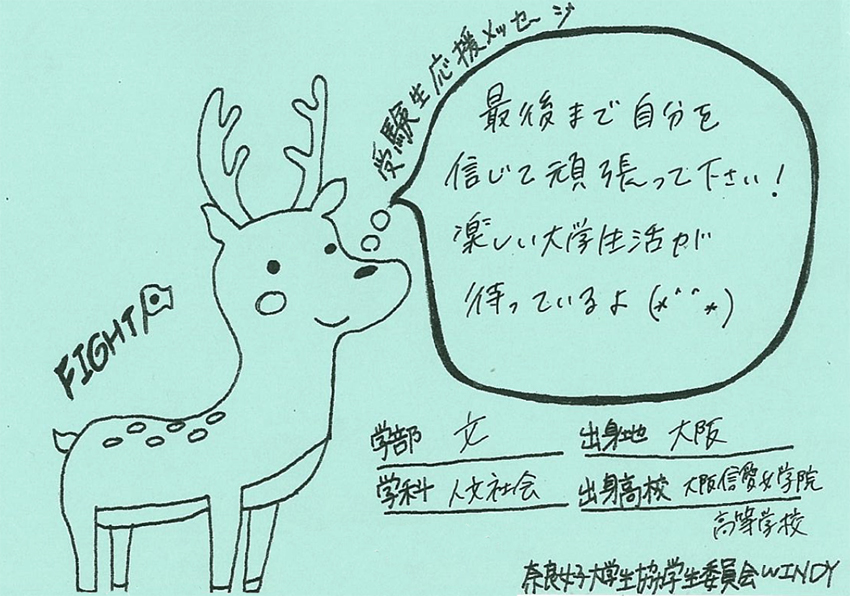 受験生応援メッセージ
最後まで自分を
信じて頑張って下さい!
楽しい大学生活が
待っているよ(*^^*)
FIGHT
学部 文
出身地 大阪
学科 人文社会
出身高校 大阪信愛女学院
高等学校
奈良女子大学生協学生委員会WINDY